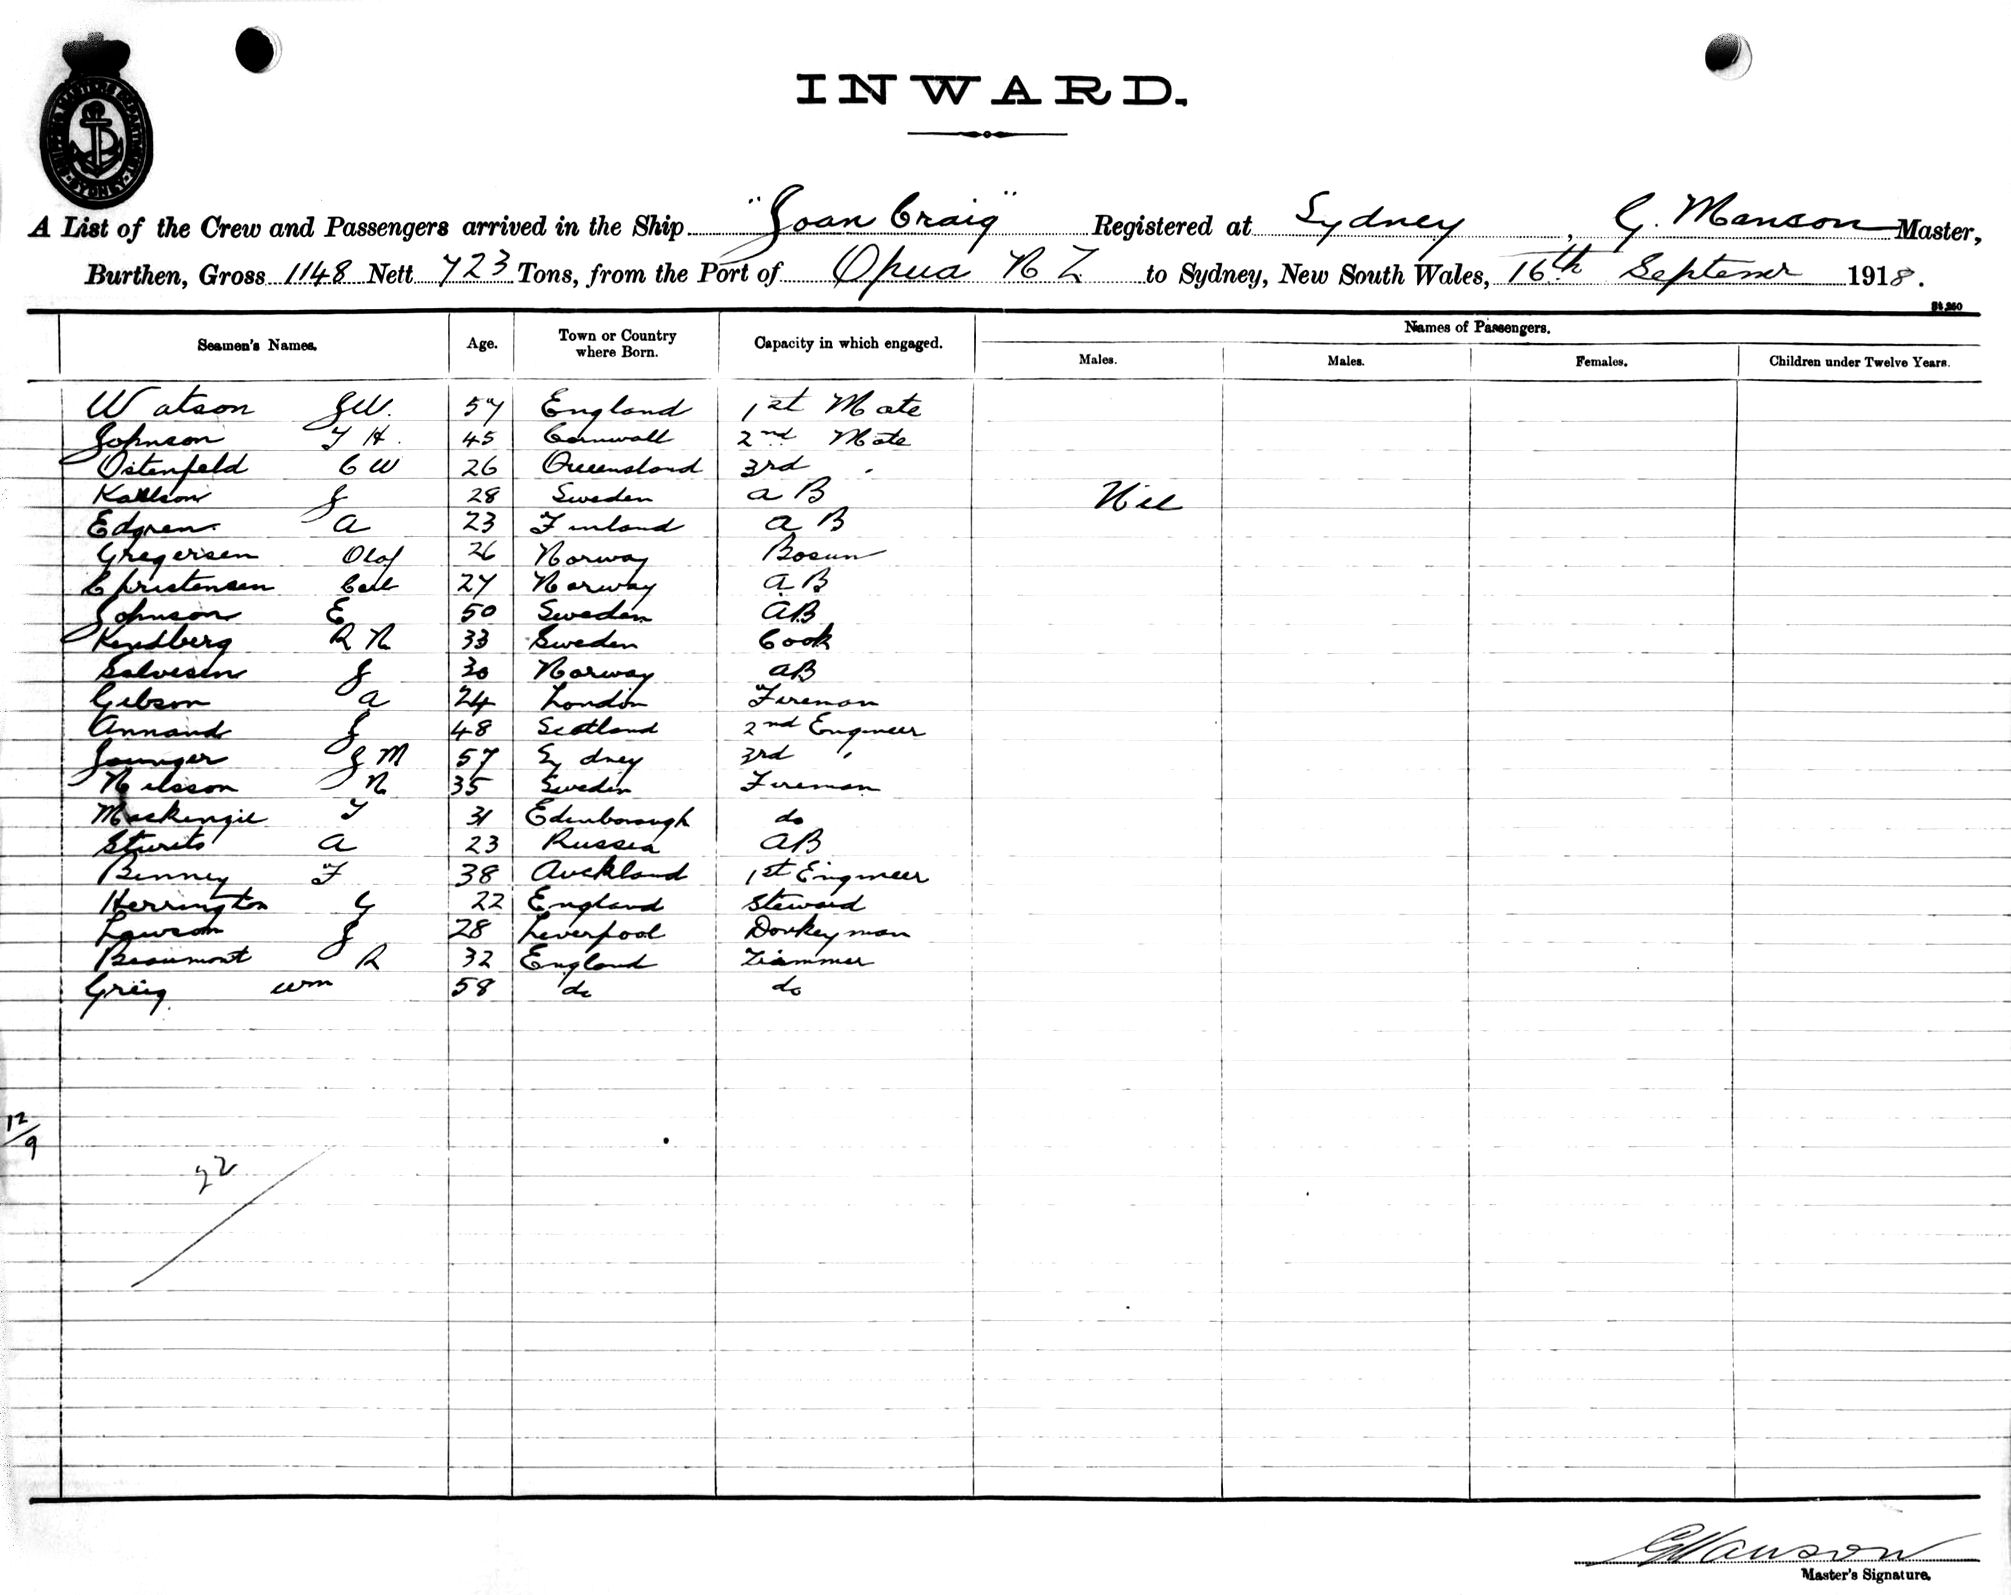 INWARD.
A List of the Crew and Passengers arrived in the Ship "Joan Craig" Registered at Sydney, G. Manson Master,
Burthen, Gross 1148 Nett 723 Tons, from the Port of Opua N Z to Sydney, New South Wales, 16th September 1918.
Names of Passengers.
Seamen's Names. Age. Town or Country where Born. Capacity in which engaged. Males. Males. Females. Children under Twelve Years.
Watson J W. 57 England 1st Mate
Johnson T H. 45 Cornwall 2nd Mate
Ostenfeld C W 26 Queensland 3rd "
Karlson J 28 Sweden A B Nil
Edgren A 23 Finland A B
Gregersen Olaf 26 Norway Bosun
Christensen Carl 27 Norway A B
Johnson E 50 Sweden AB
Kindberg R N 33 Sweden Cook
Salvesen J 30 Norway AB
Gibson A 24 London Fireman
Annand J 48 Scotland 2nd Engineer
Younger J M 57 Sydney 3rd "
Nilsson N 35 Sweden Fireman
Mackenzie T 31 Edenborough do
Sturits A 23 Russia AB
Binney F 38 Auckland 1st Engineer
Herrington G 22 England Steward
Lawson J 28 Liverpool Donkeyman
Beaumont R 32 England Trimmer
Greig Wm 58 do do
12/9
22
G Manson
Master's Signature.